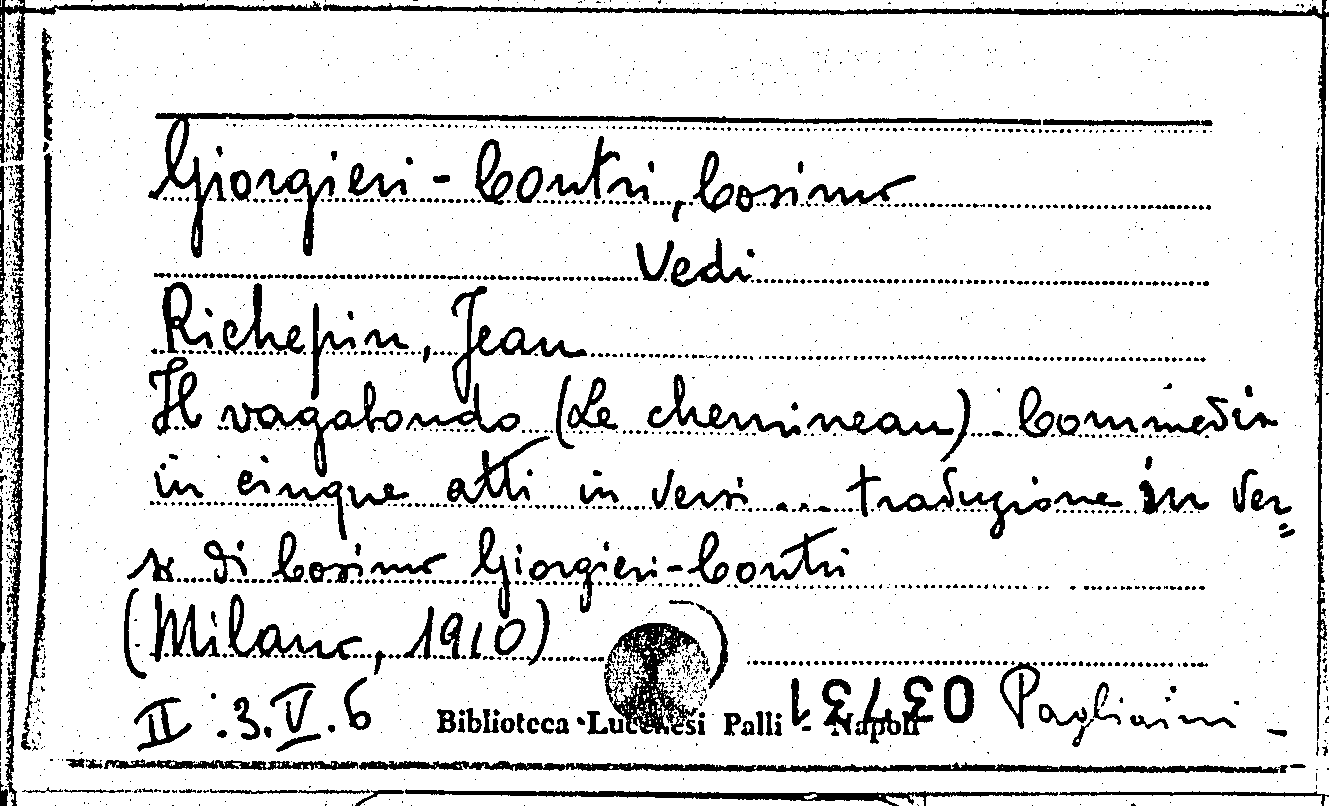 Giorgieri-Contri, Cosimo
Vedi
Richepin, Jean
Il vagabondo (Le chemineau). Commedia
in cinque atti in versi ... traduzione in ver=
si di Cosimo Giorgieri-Contri
(Milano, 1910)
II.3.V.6
Biblioteca Lucchesi Palli - Napoli
Pagliaini -